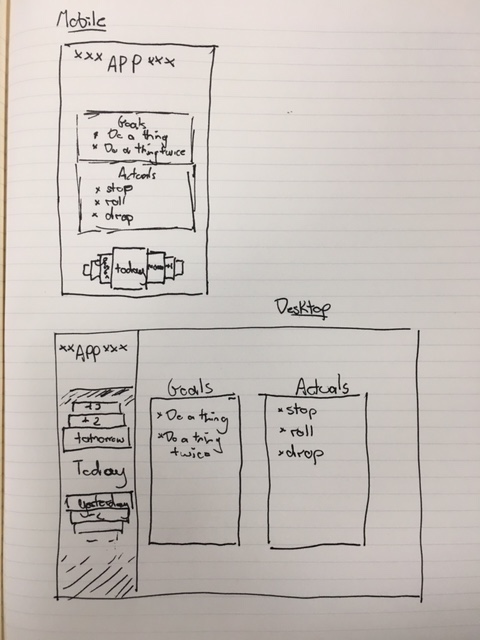 Mobile
xxx APP xxx
Goals
x Do a thing
x Do a thing twice
Actuals
x stop
x roll
x drop
today
Desktop
xx APP xxx
+3
+2
tomorrow
Today
Yesterday
-2
Goals
x Do a thing
x Do a thing
twice
Actuals
x stop
x roll
x drop